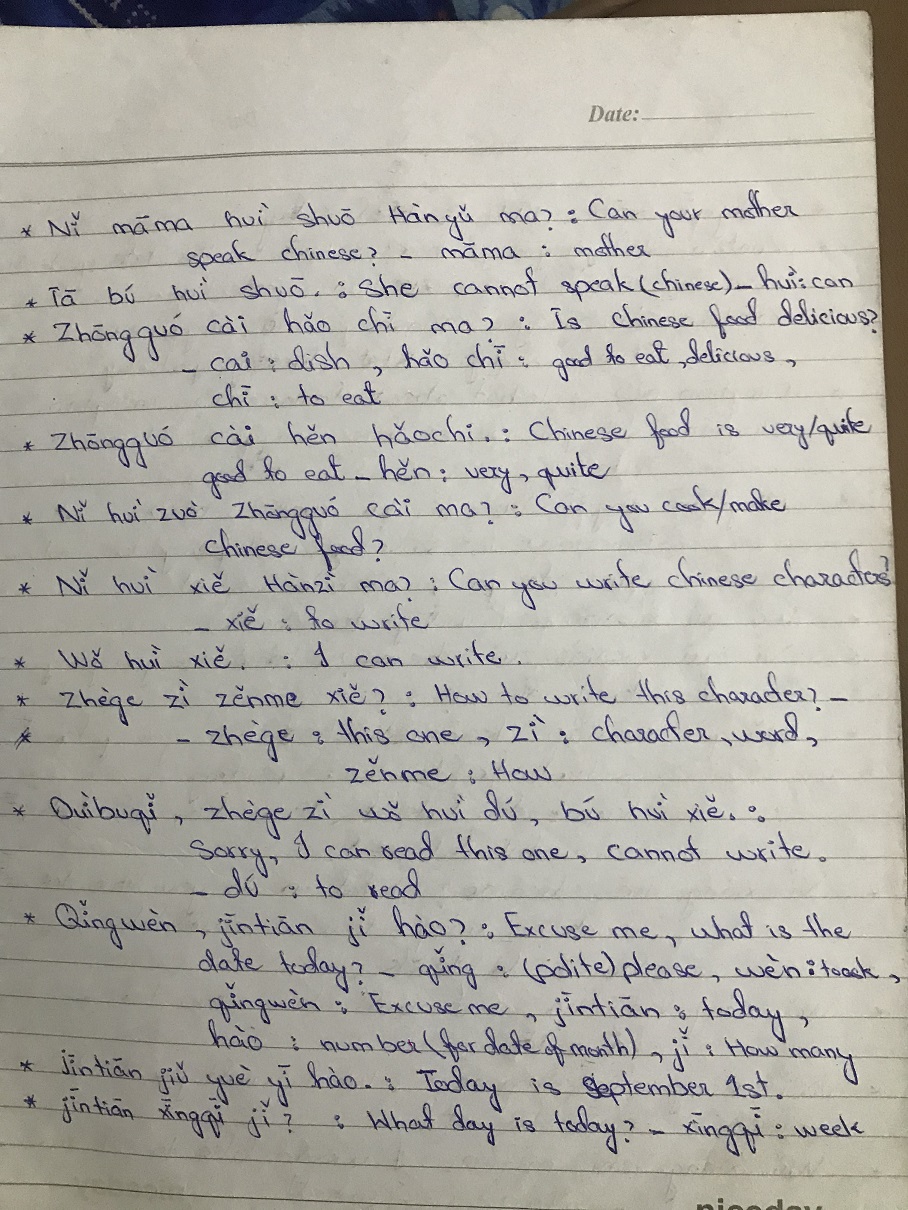 Date:
* Nǐ māma huì shuō Hànyǔ ma? : Can your mother
speak chinese? - māma : mother
* Tā bú huì shuō. : She cannot speak (chinese) - huì : can
* Zhōngguó cài hǎo chī ma? : Is Chinese food delicious?
- cai : dish, hǎo chī : good to eat, delicious,
chī : to eat
* Zhōngguó cài hěn hǎochi. : Chinese food is very/quite
good to eat - hěn : very, quite
* Nǐ huì zuò Zhōngguó cài ma? : Can you cook/make
chinese food?
* Nǐ huì xiě Hànzì ma? : Can you write chinese characters?
- xiě : to write
* Wǒ huì xiě. : I can write.
* Zhège zì zěnme xiě? : How to write this character? -
* - zhège : this one, zì : character, word,
zěnme : How
* Duìbuqǐ, zhège zì wǒ huì dú, bú huì xiě. :
Sorry, I can read this one, cannot write.
- dú : to read
* Qǐngwèn, jīntiān jǐ hào? : Excuse me, what is the
date today? - qǐng : (polite) please, wèn : to ask,
qǐngwèn : Excuse me, jīntiān : today,
hào : number (for date of month), jǐ : How many
* Jīntiān jiǔ yuè yī hào. : Today is September 1st.
* jīntiān xīngqī jǐ? : What day is today? - xīngqī : week